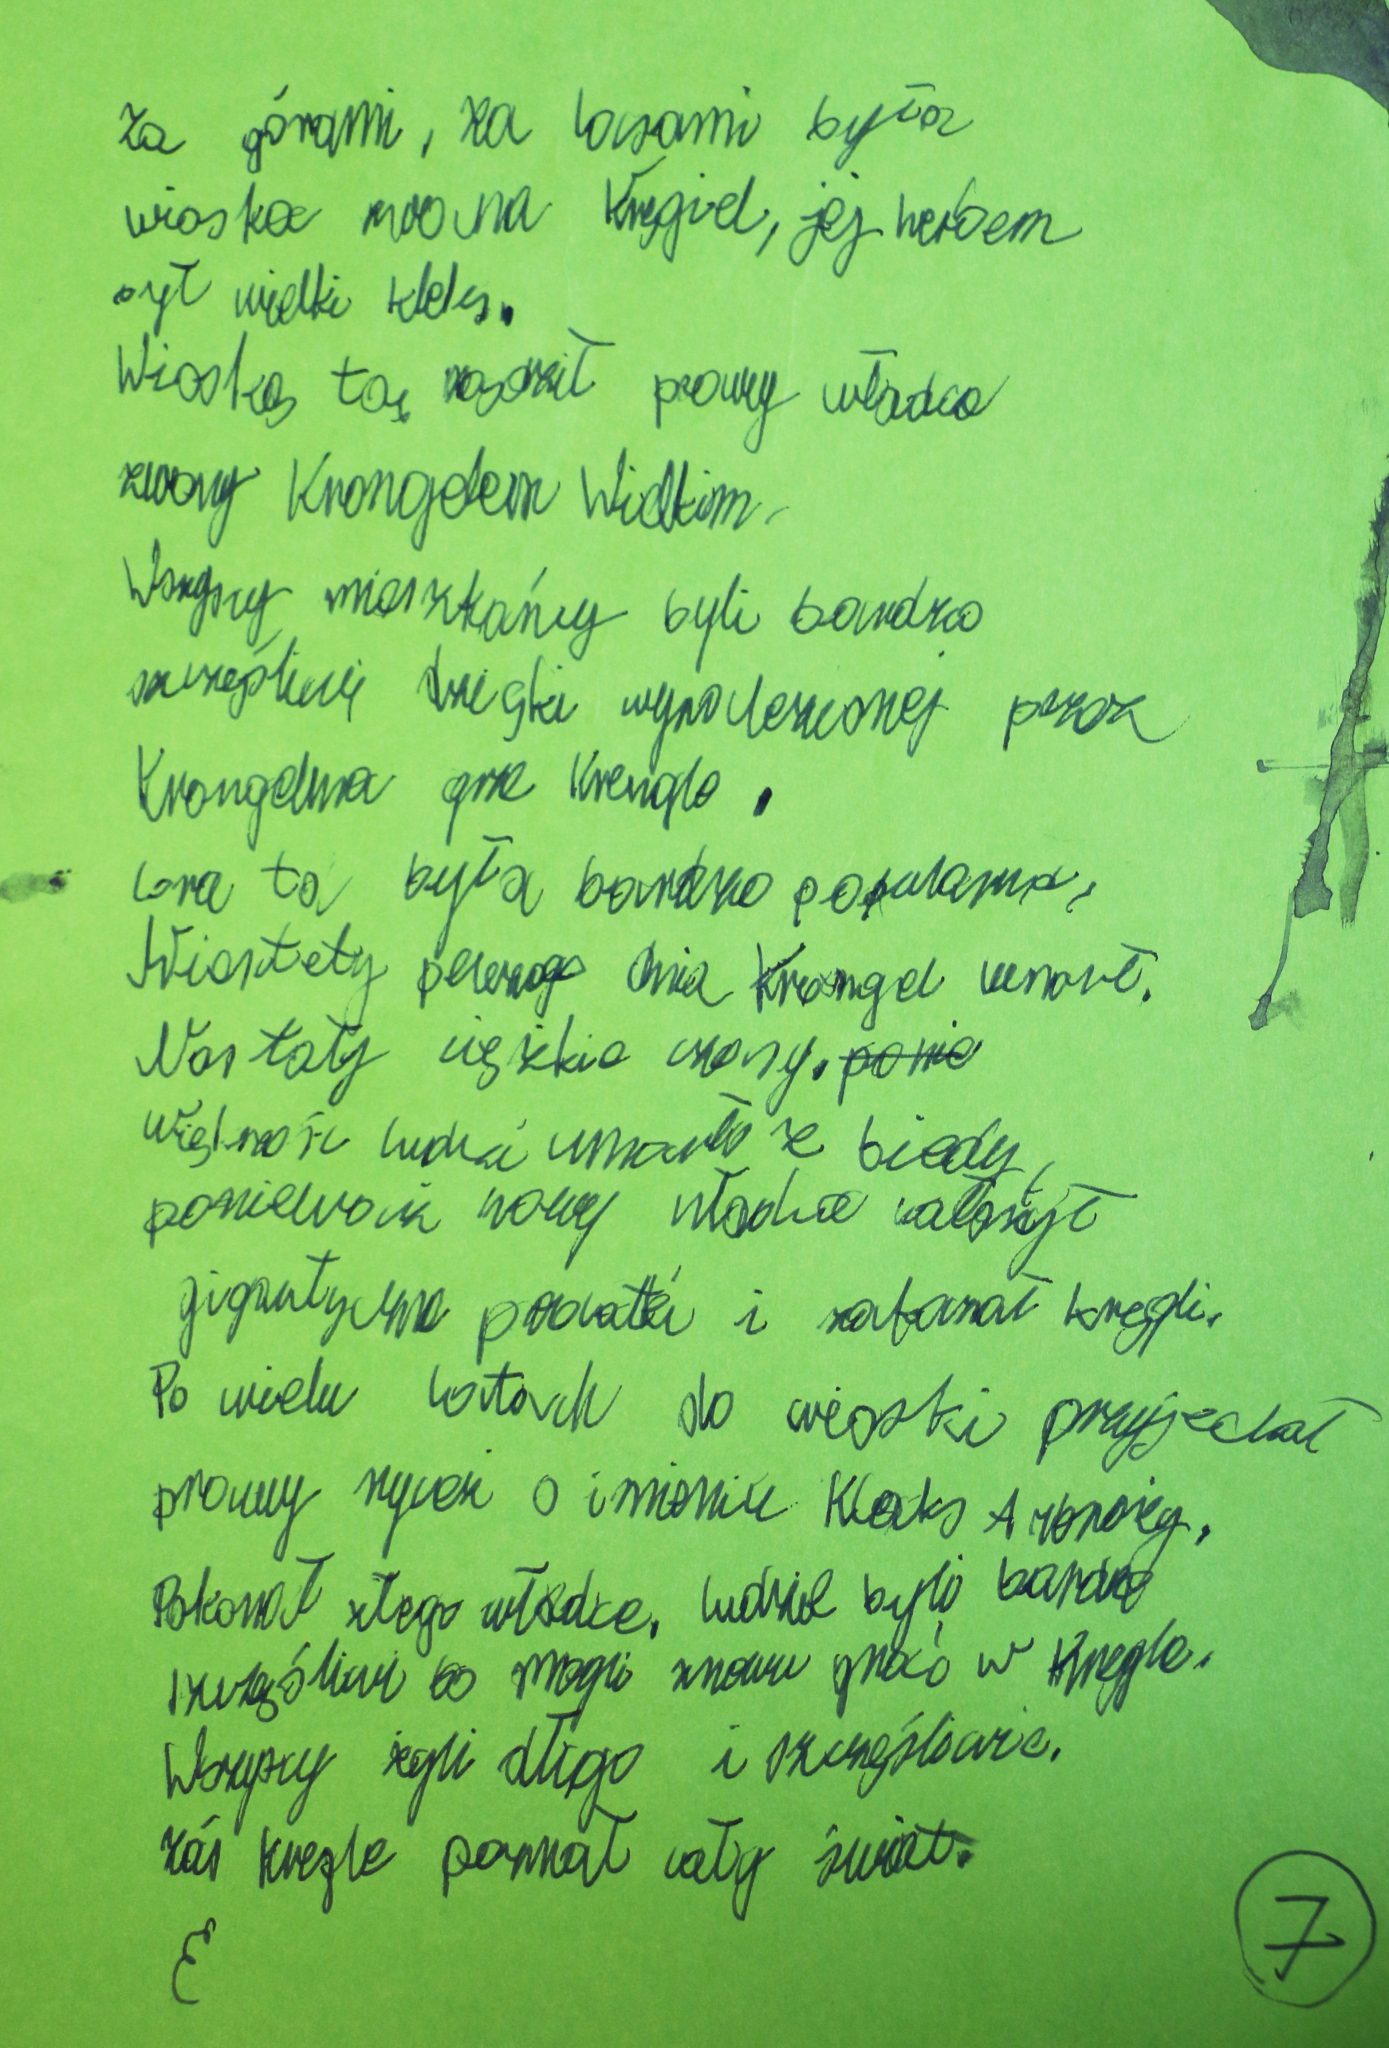 Za górami, za lasami była
wioska zwana Kręgiel, jej herbem
był wielki kleks.
Wioską tą rządził prawy władca
zwany Krongelem Wielkim.
Wszyscy mieszkańcy byli bardzo
szczęśliwi dzięki wynalezionej przez
Krongelma grze Krengle.
Gra ta była bardzo popularna,
Niestety pewnego dnia Krongel umarł.
Nastały ciężkie czasy. ponie
Większość ludzi umarło z biedy,
ponieważ nowy władca nałożył
gigantyczne podatki i zabronał kręgli.
Po wielu latach do wioski przyjechał
prawy rycerz o imieniu Kleks
Pokonał złego władce. Ludzie byli bardzo
szczęśliwi bo mogli znowu grać w Kręgle.
Wszyscy żyli długo i szczęśliwie.
Zaś kręgle poznał cały świat.
E
7